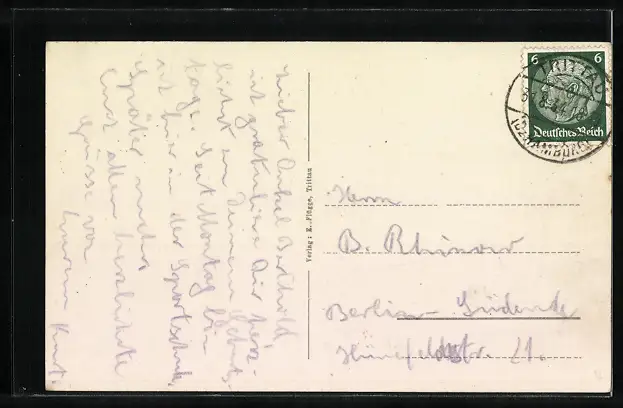 Lieber Onkel Berthold,
ich gratuliere Dir herz-
lichst zu Deinem Geburts-
tage. Seit Montag bin
ich hier in der Sportschule.
Später mehr.
Euch allen herzlichste
Grüsse von
Eurem Knut.
Verlag: K. Plügge, Trittau
6 6
TRITTAU
Deutsches Reich
Herrn
B. Rhinow
Berlin-Südende
Hünefeldstr. 21.